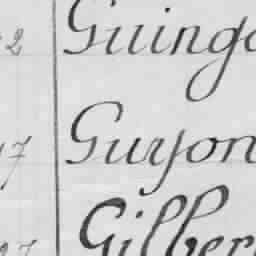 2 Guingo
17 Guyon
27 Gilber